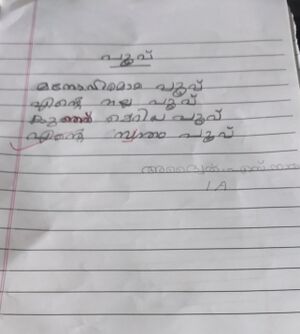 പൂവ്
മനോഹരമായ പൂവ്
എന്റെ നല്ല പൂവ്
കുഞ്ഞ് ചെറിയ പൂവ്
എന്റെ സ്വന്തം പൂവ്
1 A